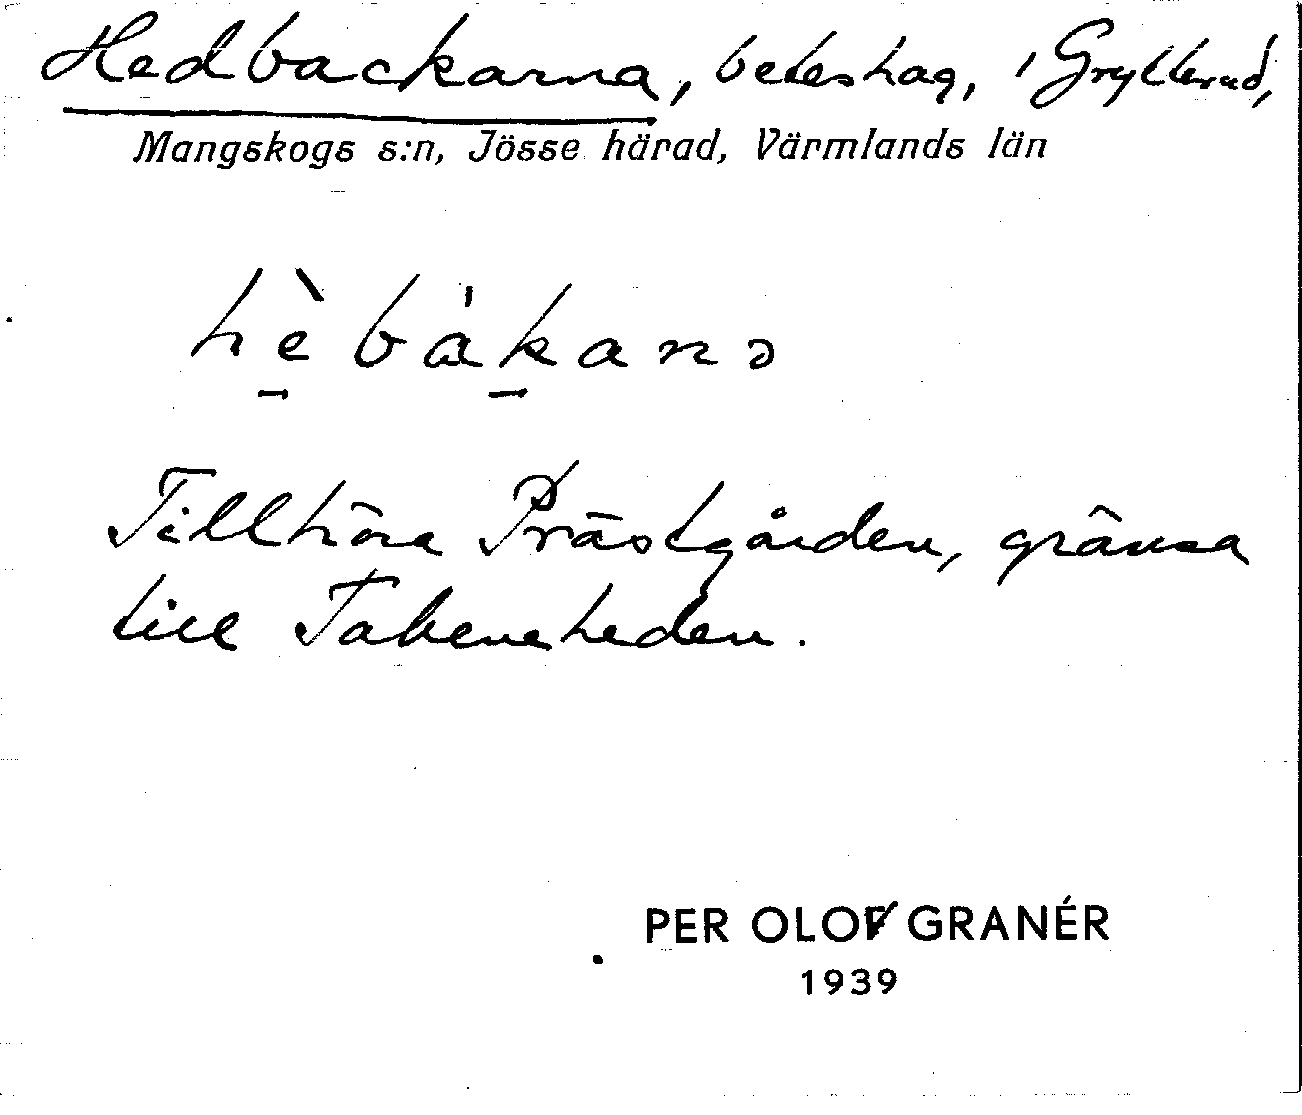 Hedbackarna, beteshag, i Grytterud,
Mangskogs s:n, Jösse härad, Värmlands län
hè̱bàḵanə
Tillhöra Prästgården, gränsa
till Takeneheden.
PER OLOF GRANÉR
1939